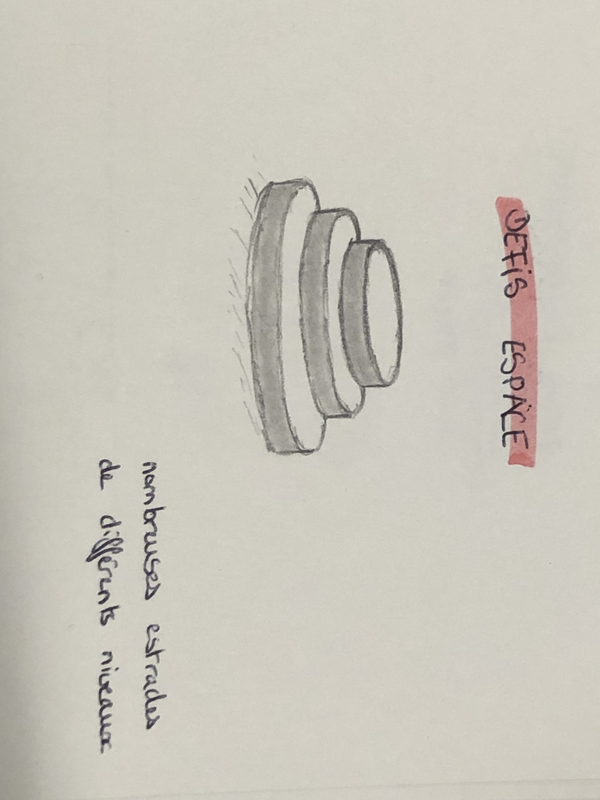 DEFIS ESPACE
nombreuses estrades
de différents niveaux